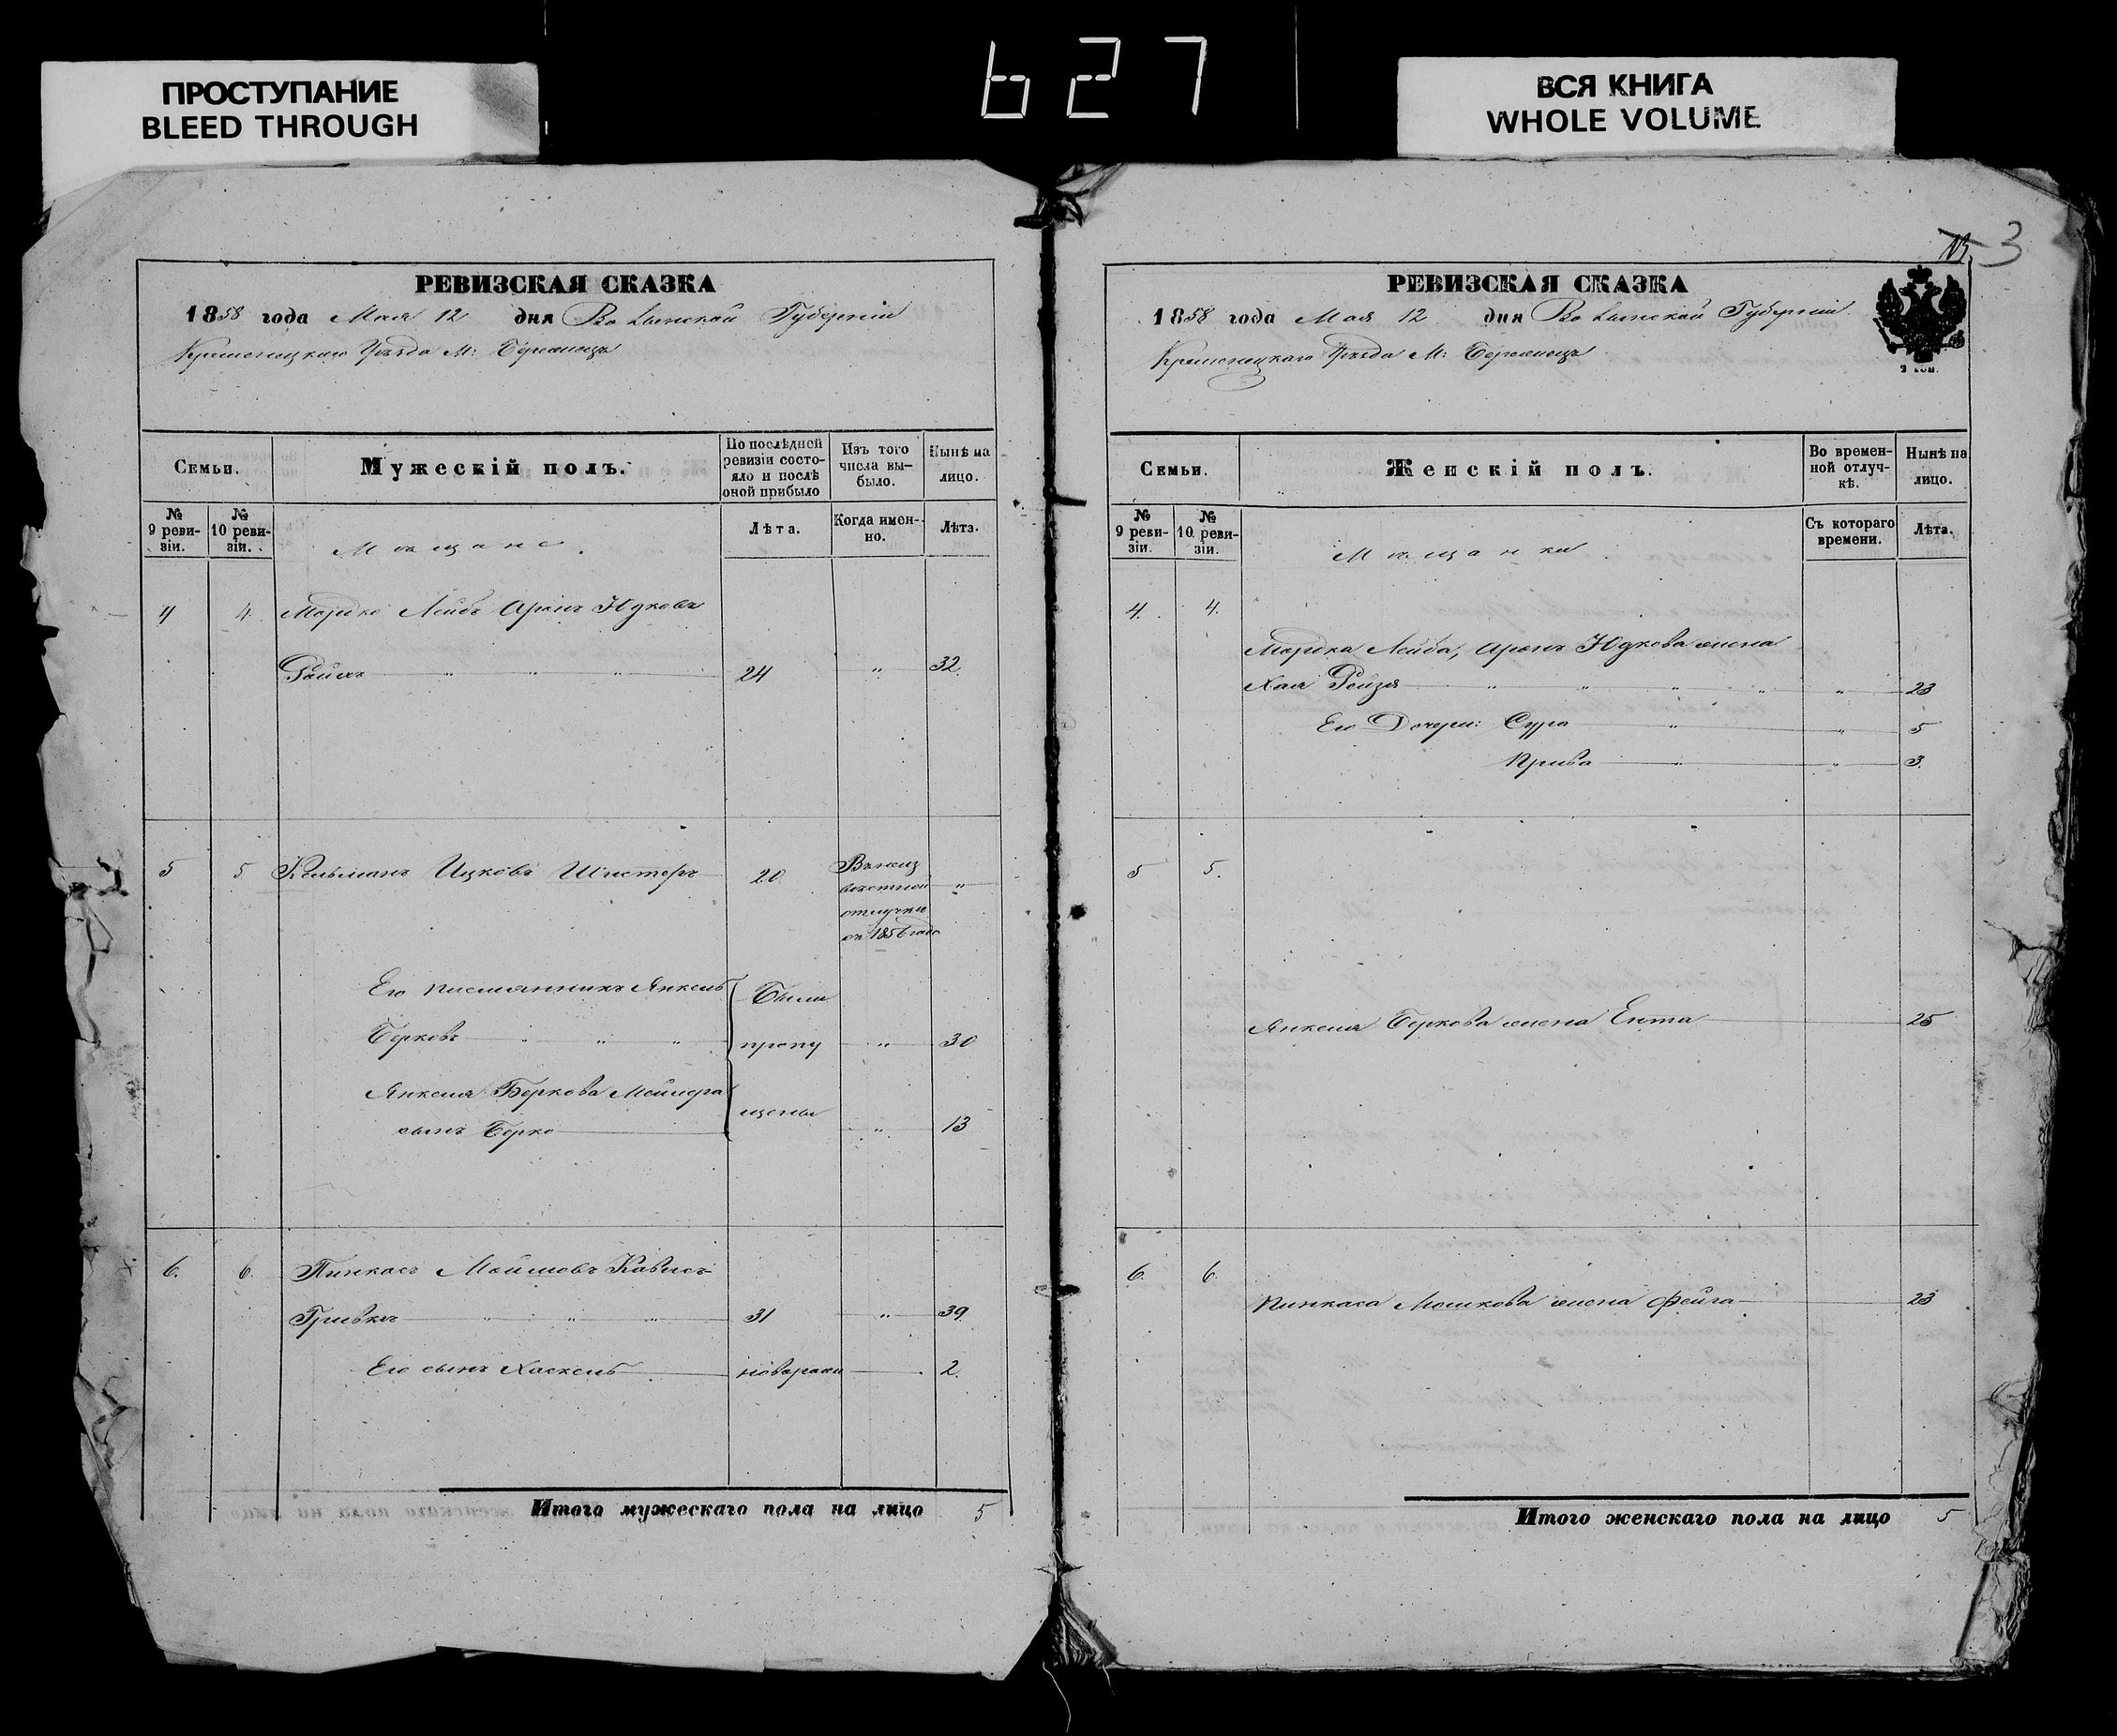 ПРОСТУПАНИЕ
BLEED THROUGH
627
ВСЯ КНИГА
WHOLE VOLUME
РЕВИЗСКАЯ СКАЗКА
1858 года Мая 12 дня Волынской Губерніи
Кременецкаго Уѣзда М: Бережецъ
Семьи.
Мужескій полъ.
По послѣдней ревизіи состояло и послѣ оной прибыло
Изъ того числа выбыло.
Нынѣ на лицо.
№ 9 ревизіи.
№ 10 ревизіи.
Мѣщане.
Лѣта.
Когда именно.
Лѣта.
4 4. Мордко Лейбъ Аронъ Юдковъ
Ройхъ " " " 24 " 32.
5 5 Кельманъ Ицковъ 20 Въ неиз
вѣстной "
отлучкѣ
съ 1856 года
Его племянникъ Янкель Были
Берковъ " " " пропу " 30
Янкеля Беркова
сынъ Берко щены " 13
6. 6. Пинкасъ
31 " 39
Его сынъ Хаскель новорожд 2.
Итого мужескаго пола на лицо 5
3
РЕВИЗСКАЯ СКАЗКА
1858 года Мая 12 дня Волынской Губерніи
Кременецкаго Уѣзда М: Бережецъ
Семьи.
Женскій полъ.
Во временной отлучкѣ.
Нынѣ на лицо.
№ 9 ревизіи.
№ 10 ревизіи.
Мѣщанки.
Съ котораго времени.
Лѣта.
4. 4.
Мордка Лейба, Аронъ Юдкова жена
Хая Рейзя " " " " " 23
Его Дочери: Сура " " 5
Крива " " 3.
5 5.
Янкеля Беркова жена Ента 25
6. 6
Пинкаса Мошкова жена Фейга 23
Итого женскаго пола на лицо 5